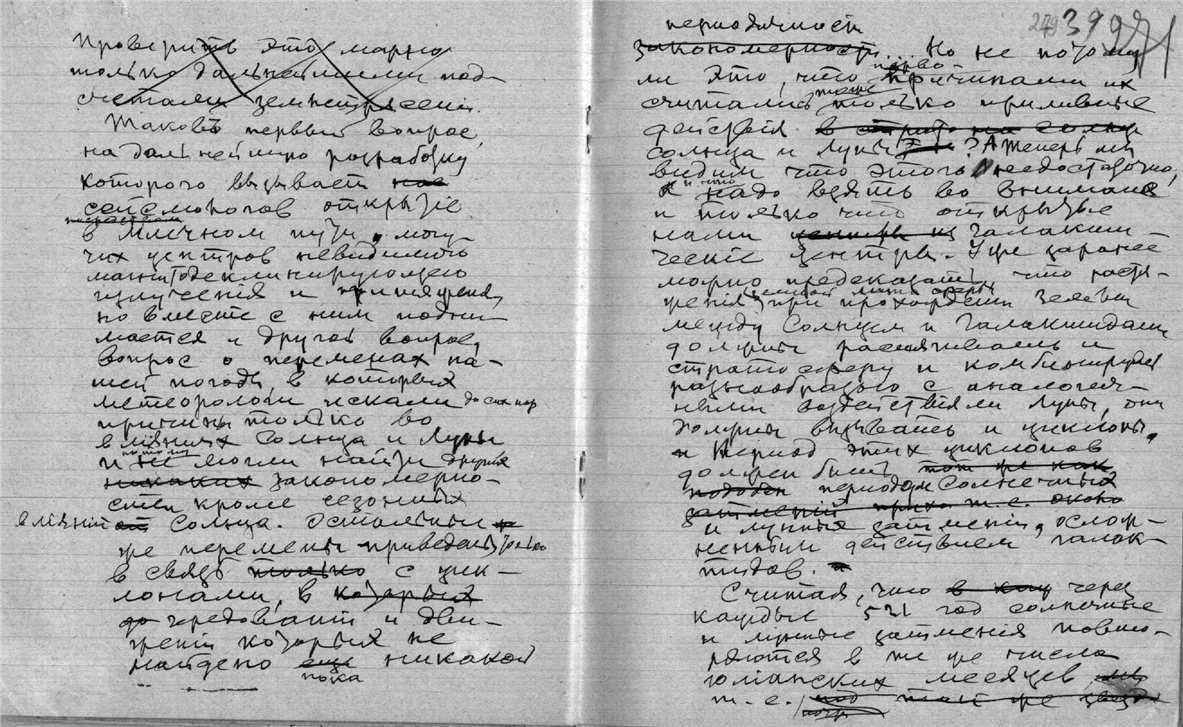 Проверить это можно
только дальнейшими под-
счетами землетрясений.
Таковъ первый вопрос,
на дальнейшую разработку
которого вызывает нас
сейсмологов открытие
посредством
в Млечном пути могу-
чих центров невидимого
магнитодеклинирующего
излучения и притяжения,
но вместе с ним подни-
мается и другой вопрос,
вопрос о переменах на-
шей погоды, в которых
метеорологи искали до сих пор
причины только во
влияниях Солнца и Луны
и потому не могли найти других
никаких закономерно-
стей кроме сезонных
влияний от Солнца. Остальные
же перемены приведены только
в связь только с цик-
лонами, в которых
чередовании и дви-
жении которых не
найдено еще никакой
пока
периодичности
закономерности... Но не потому
ли это, что перво-причинами их
считались тоже только приливные
действия
солнца и Луны ? А теперь мы
видим что этого недостаточно,
и что надо взять во внимание
и только что открытые
нами центры из галакти-
ческие центры. Уже заранее
можно предсказать, что натя-
жения при прохождении Земли
между Солнцем и Галактидами
должны растягивать и
стратосферу и комбинируясь
разнообразно с аналогич-
ными воздействиями Луны, они
должны вызывать и циклоны,
и период этих циклонов
должен быть тот же как
периодом Солнечных
затмений т. е. около
и лунных затмений, ослож-
ненным действием галак-
тидов.
Считая, что в каж через
каждый 521 год солнечные
и лунные затмения повто-
ряются в те же числа
юлианских месяцев
т. е. под теми же звезд